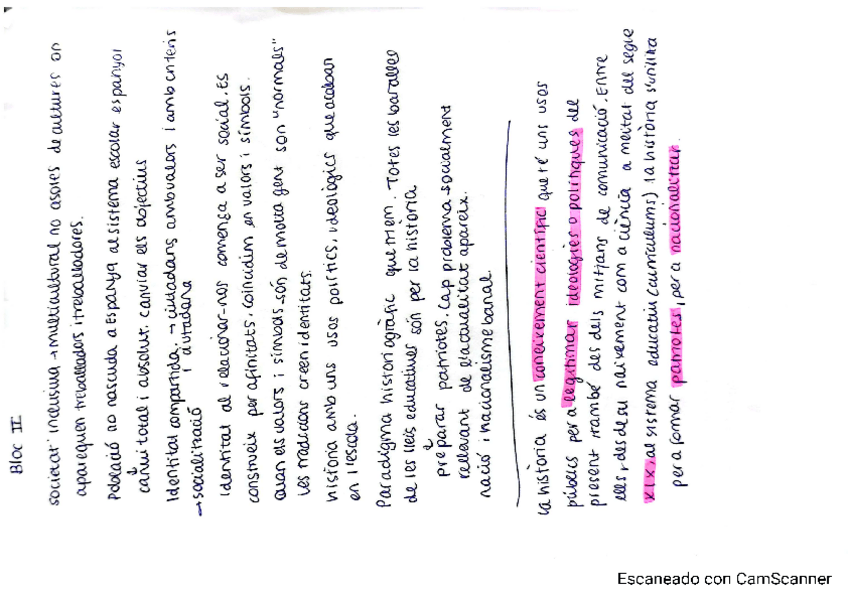 Bloc II
societat inclusiva → multicultural no asoles de cultures on
apareguen treballadors i treballadores.
Població no nascuda a Espanya al sistema escolar espanyol
↓
canvi total i absolut. Canviar els objectius
Identitat compartida → ciutadans amb valors i amb criteris
i ciutadana
→ socialització
Identitat al relacionar-nos comença a ser social. Es
construeix per afinitats, coincidim en valors i símbols.
Quan els valors i símbols són de molta gent són "normals"
les tradicions creen identitats.
història amb uns usos polítics, ideològics que acaban
en l'escola.
Paradigma historiogràfic que triem. Totes les baralles
de les lleis educatives són per la història
↓
preparar patriotes. Cap problema socialment
rellevant de l'actualitat apareix.
nació i nacionalisme banal.
La història és un coneixement científic que té uns usos
públics per a legitimar ideologies o polítiques del
present també des dels mitjans de comunicació. Entre
ells des de su naixement com a ciència a meitat del segle
XIX, al sistema educatiu (currículums) la història s'utilitza
per a formar patriotes, per a nacionalitzar.
Escaneado con CamScanner